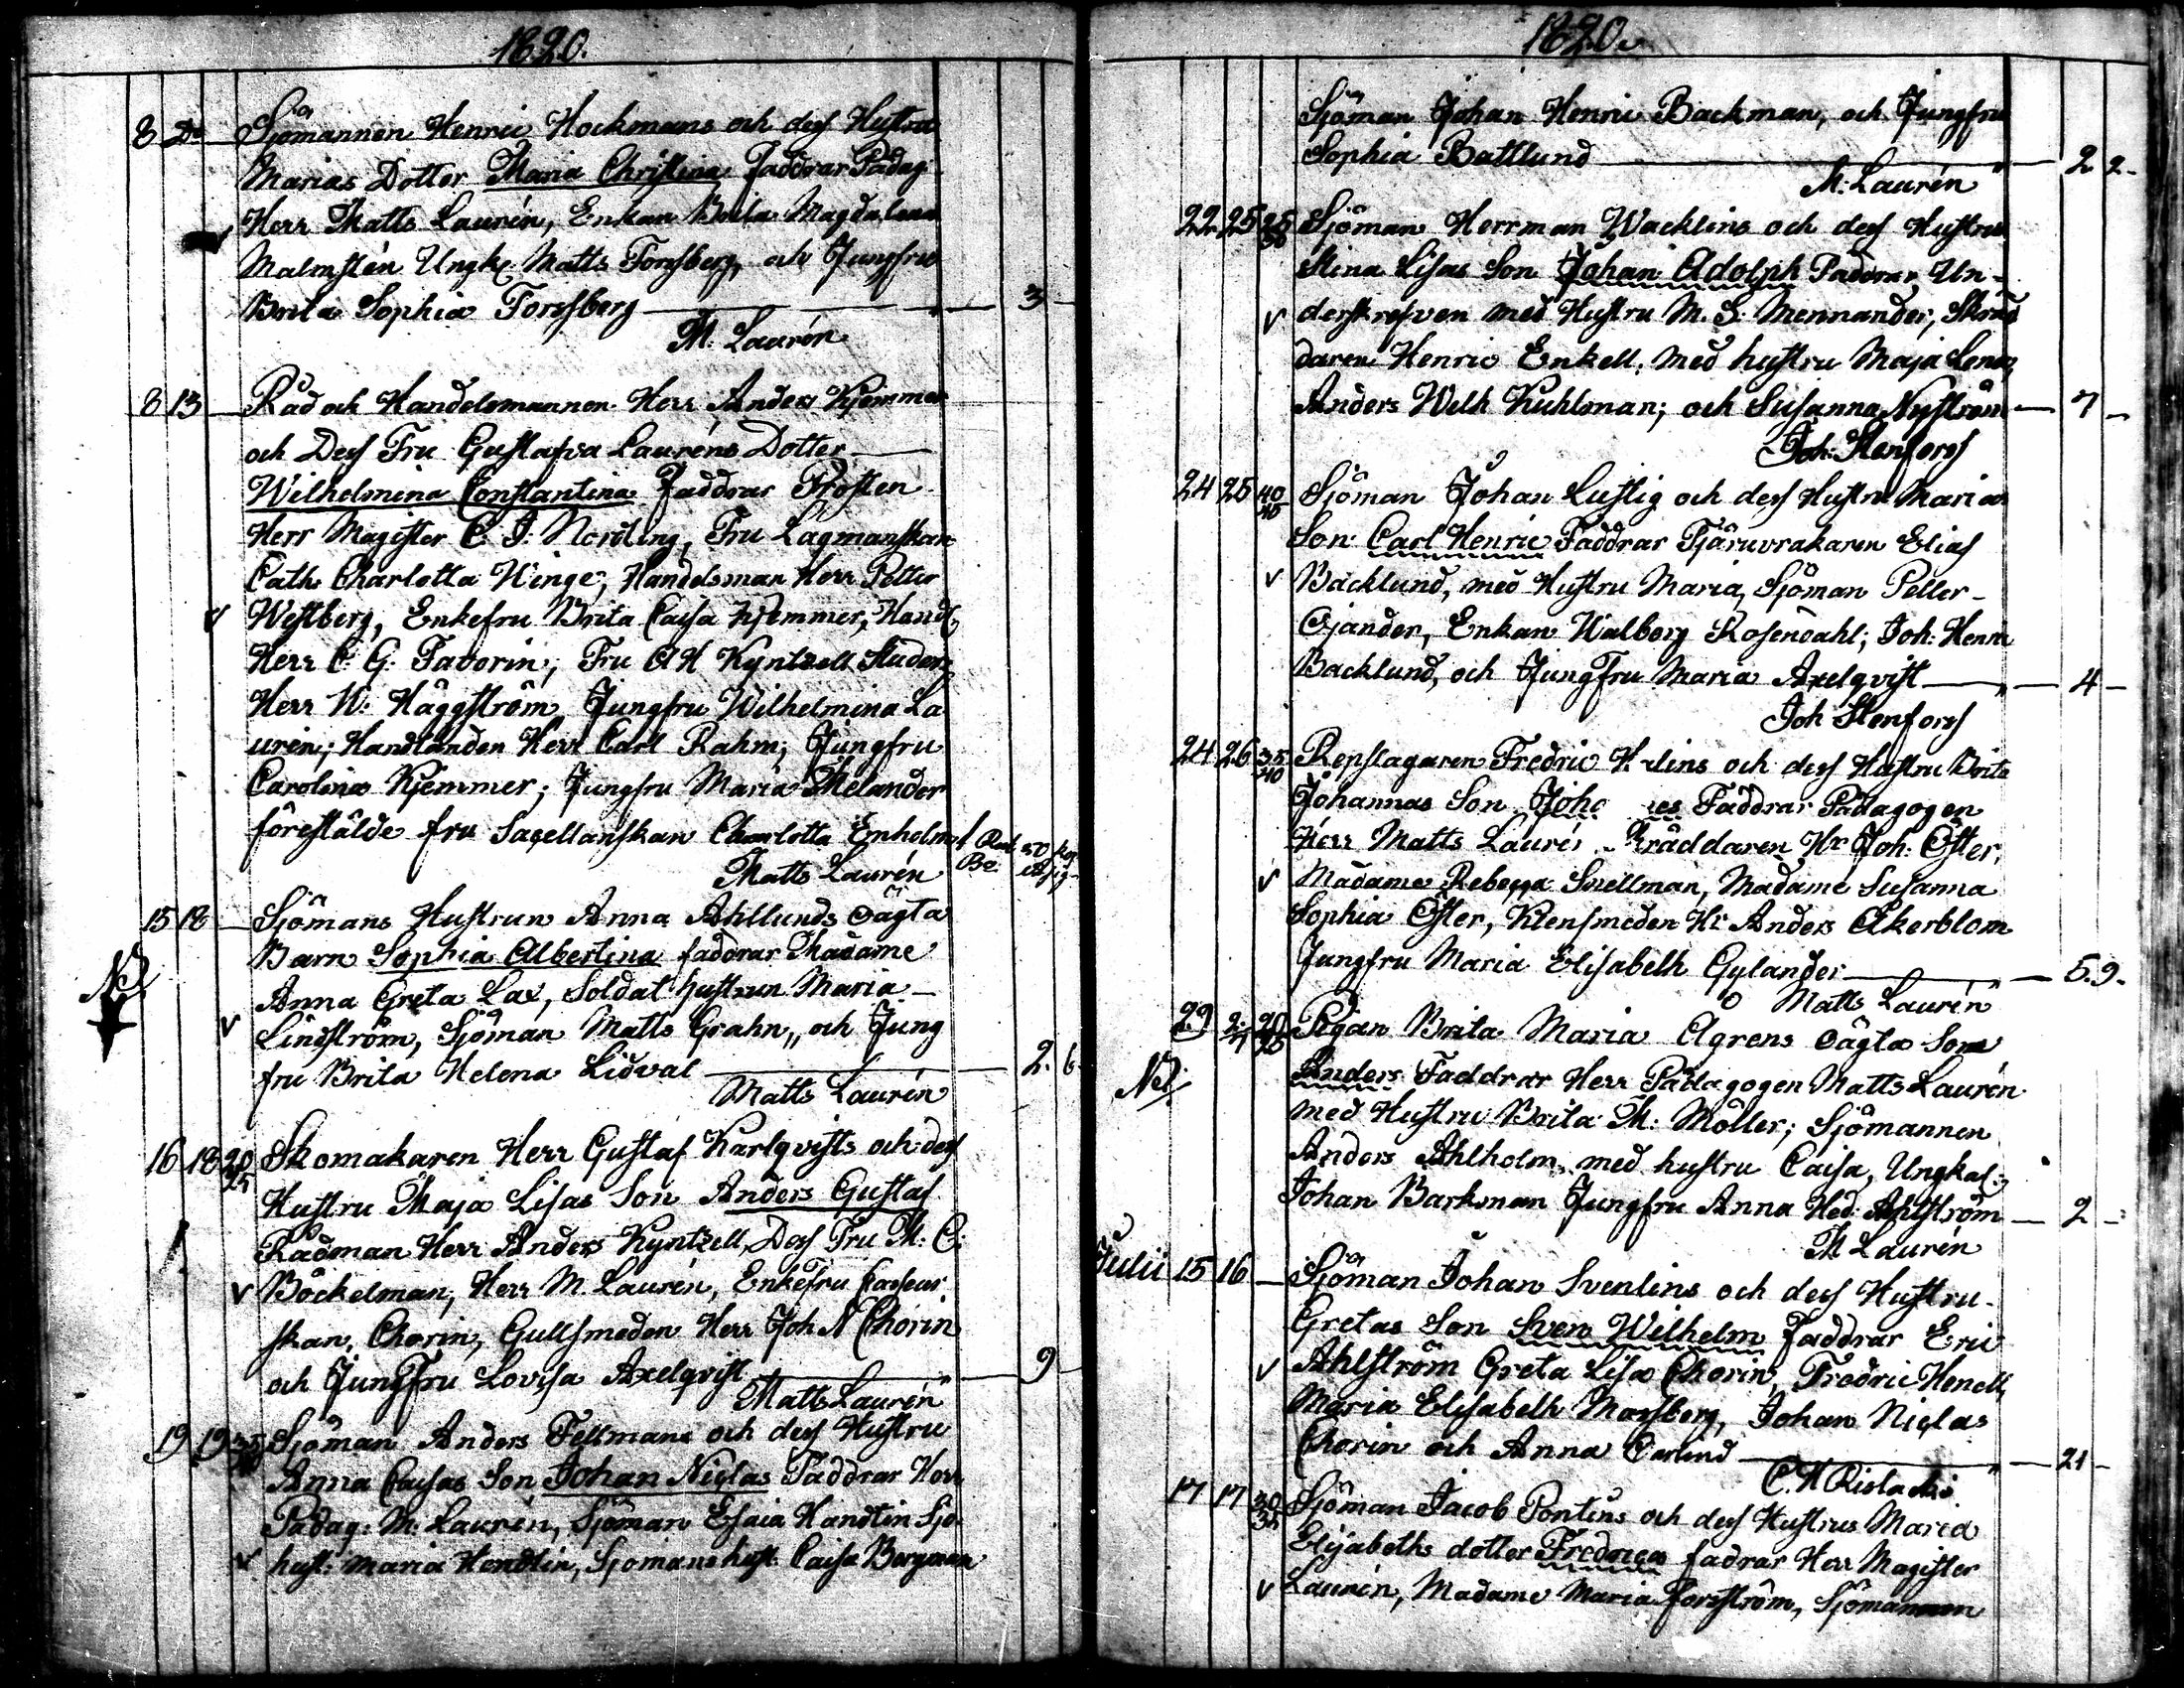 1820.
8 Do Sjömannen Henric Hockmans och dess Hustru
Marias Dotter Maria Christina Faddrar Pädag.
Herr Matts Laurén, Enkan Brita Magdalena
Malmstén Ungk. Matts Forssberg, och Jungfru
Brita Sophia Forssberg 3
M. Laurén
8 13 Råd och Handelsmannen Herr Anders Kjemmer
och Dess Fru Gustafva Lauréns Dotter
Wilhelmina Constantina Faddrar Prosten
Herr Magister C. J. Nordling, Fru Lagmanskan
Cath. Charlotta Winge, Handelsman Herr Petter
v Westberg, Enkefru Brita Caisa Kjemmer, Handl.
Herr C. G. Favorin, Fru A H Kyntzell Studer.
Herr W. Häggström Jungfru Wilhelmina La
urén; Handlanden Herr Carl Rahm; Jungfru
Carolina Kjemmer; Jungfru Maria Melander
förestälde fru Sacellanskan Charlotta Enholm
Matts Laurén
15 18 Sjömans Hustrun Anna Ahllunds oägta
Barn Sophia Albertina faddrar Madame
Anna Greta Lax, Soldat hustrun Maria
v Lindström, Sjöman Matts Grahn, och Jung
fru Brita Helena Lidval 2. 6.
Matts Laurén
16 18 20/25 Skomakaren Herr Gustaf Karlqvists och dess
Hustru Maja Lisas Son Anders Gustaf
Rådman Herr Anders Kyntzell, Dess Fru M: C:
v Böckelman, Herr M. Laurén, Enkefru Casseur
skan, Chorin, Gullsmeden Herr Joh N Chorin
och JungFru Lovisa Axelqvist 9
Matts Laurén
19 19 Sjöman Anders Fellmans och dess Hustru
Anna Caisas Son Johan Niclas Faddrar Herr
Pädag: M: Laurén, Sjöman Esaia Handtin Sjö
v hust: Maria Hendtin, Sjömans hust: Caisa Bergman
1820.
Sjöman Johan Henric Backman, och Jungfru
Sophia Battlund 2 2
M: Laurén
22 25 25/30 Sjöman Herrman Wacklins och dess Hustru
Stina Lisas Son Johan Adolph Faddrar Un-
v derskrefven med Hustru M. S. Mennander, Skräd
daren Henric Enkell, med hustru Maja Lena,
Anders Welh Kuhlman; och Susanna Nyström 7
Joh: Stenforss
24 25 40/45 Sjöman Johan Lustig och dess Hustru Marias
Son Carl Henric Faddrar Tjäruvrakaren Elias
v Bäcklund, med Hustru Maria, Sjöman Petter
Ojander, Enkan Walborg Rosendahl; Joh: Henric
Backlund, och JungFru Maria Axelqvist 4
Joh Stenforss
24 26 35/40 Repslagaren Fredric H lins och dess Hustru Brita
Johannas Son Joh es Faddrar Pädagogen
Herr Matts Lauré Skräddaren Hr Joh: Öster,
v Madame Rebecca Snellman, Madame Susanna
Sophia Öster, Klensmeden Hr Anders Åkerblom
Jungfru Maria Elisabeth Gylander 5. 9.
Matts Laurén
29 20/25 Pigan Brita Maria Ågrens oägta Son
Anders Faddrar Herr Pädagogen Matts Laurén
med Hustru Brita M: Möller; Sjömannen
Anders Ahlholm, med hustru Caisa, Ungkal:
Johan Barkman Jungfru Anna Hed: Ahlström 2
M Laurén
Julii 15 16 Sjöman Johan Svenlins och dess Hustru
Gretas Son Sven Wilhelm Faddrar Eric
v Ahlström Greta Lisa Chorin, Fredric Henell,
Maria Elisabeth Morsberg, Johan Niclas
Chorin och Anna 21
17 17 30/35 Sjöman Jacob Pontins och dess Hustrus Maria
Elisabeths dotter Fredrica fadrar Herr Magister
v Laurén, Madame Maria Forsström, Sjömannen